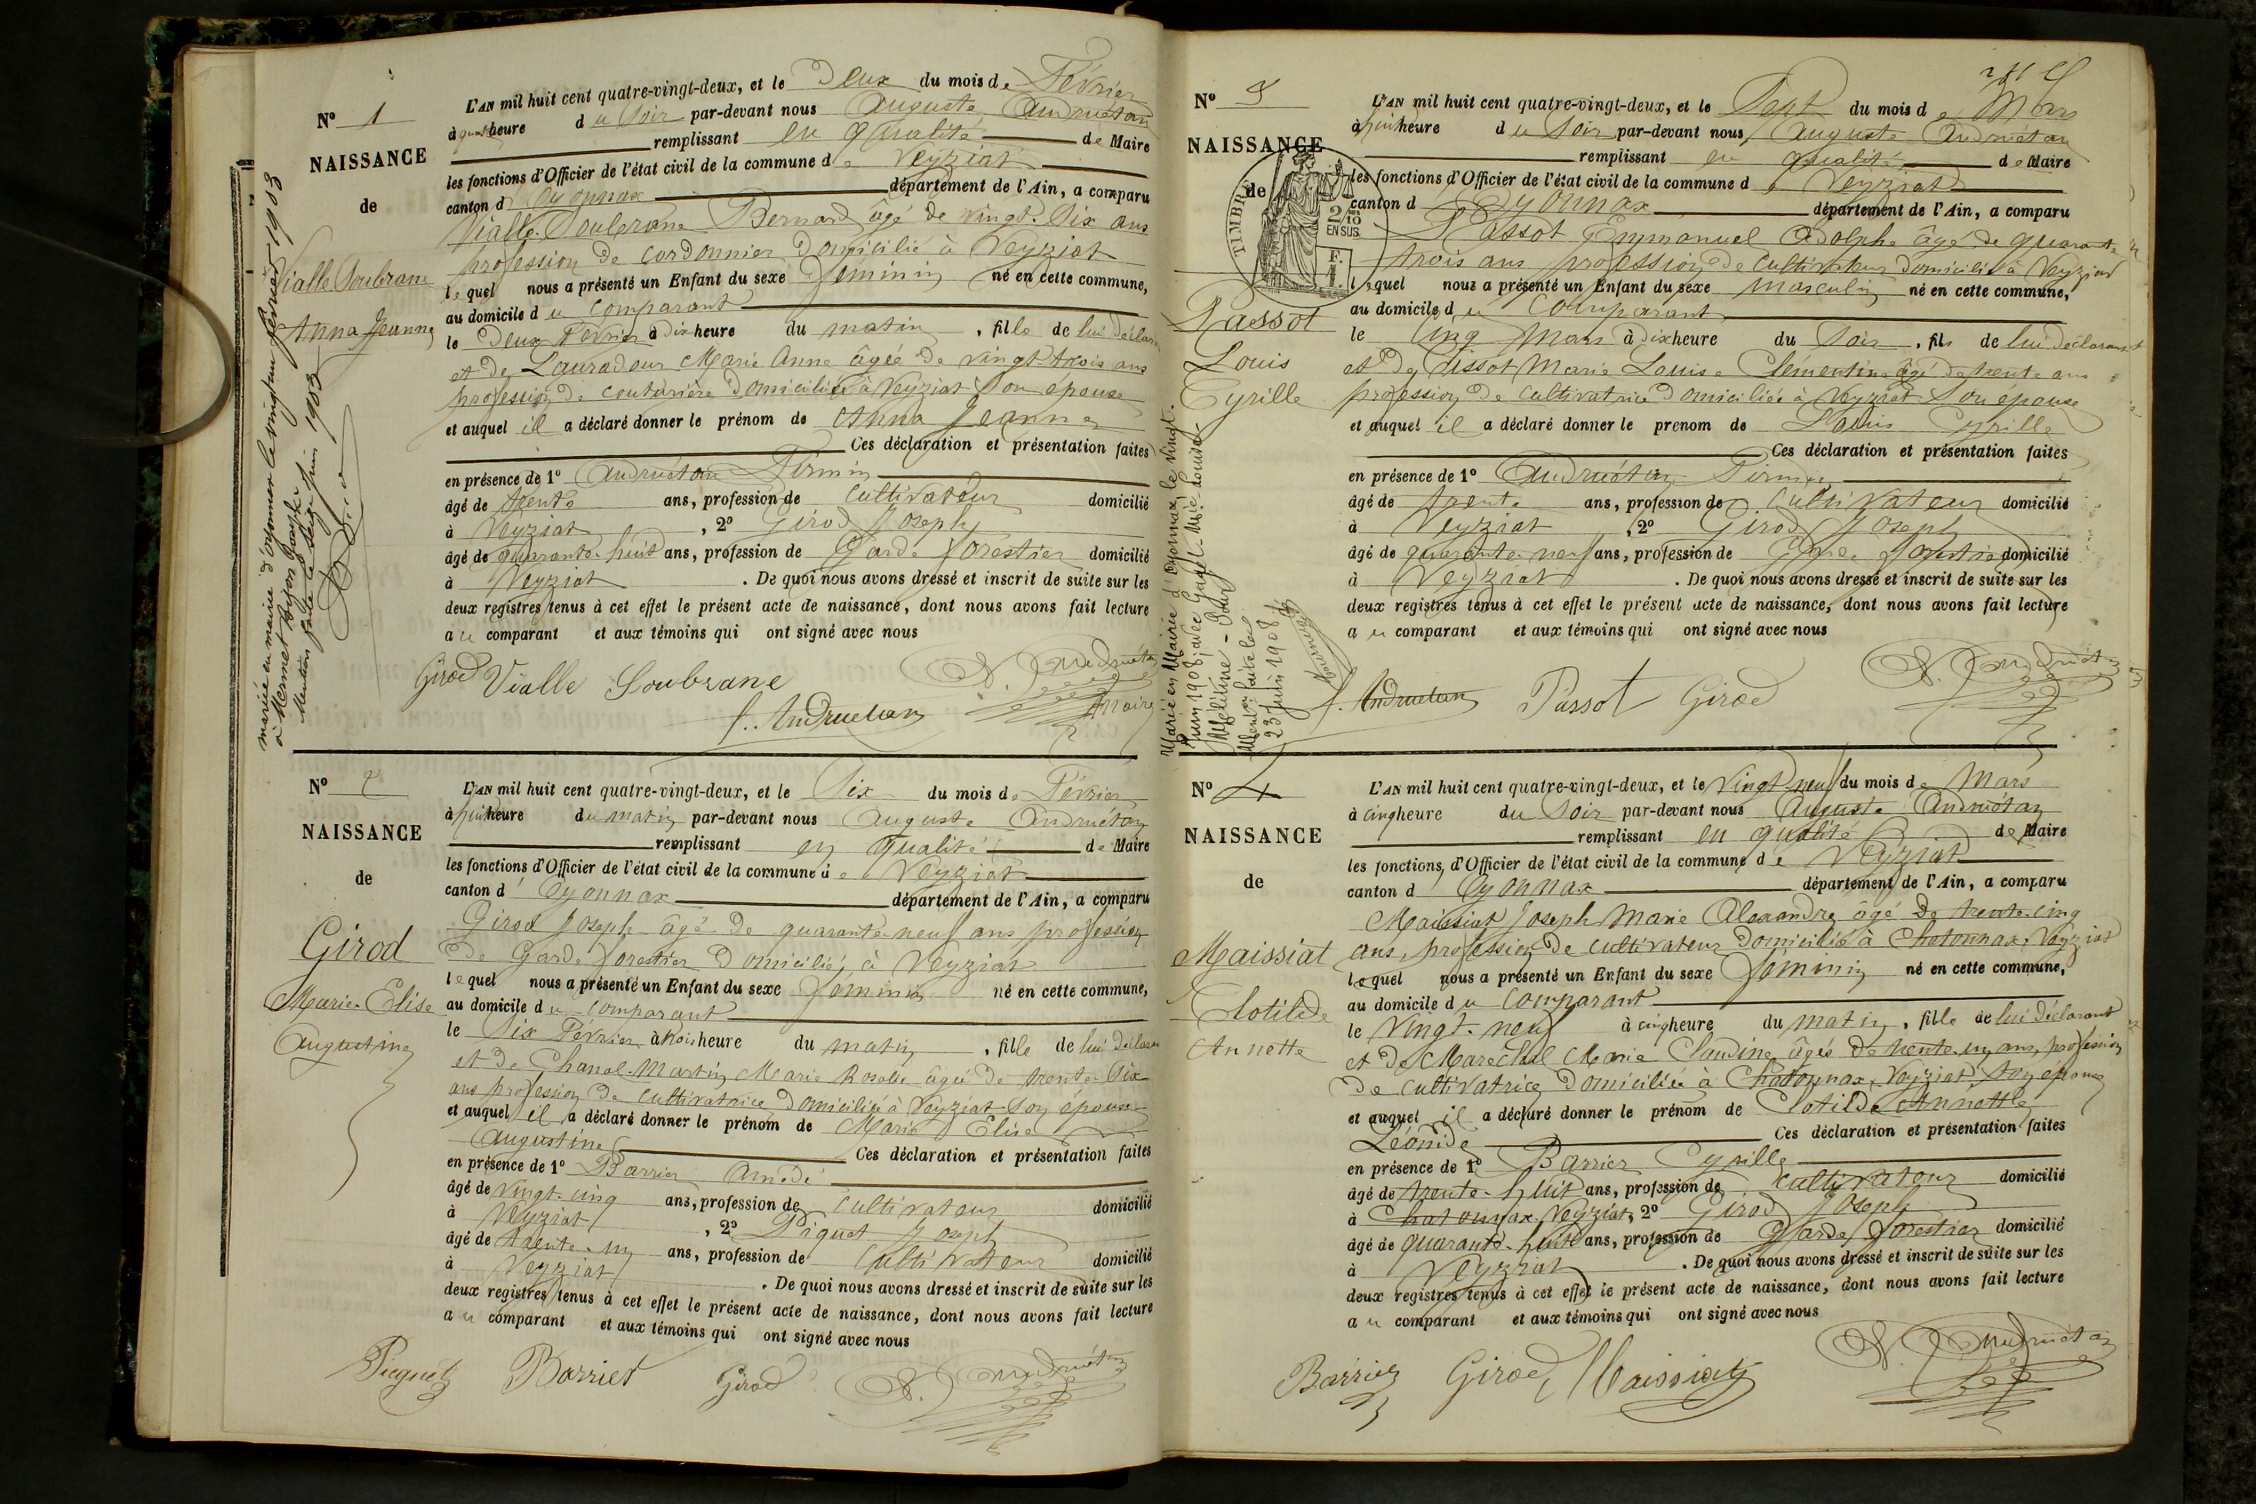 N° 1
NAISSANCE
de
Vialle Soubrane
Anna Jeanne
mariée en mairie d'oyonnax le vingt un février 1903
à Mermet Joseph
Mention faite le juin 1903
L'AN mil huit cent quatre-vingt-deux, et le Deux du mois de Février
à quatre heure du Soir par-devant nous Auguste Andruétan
remplissant en qualité de Maire
les fonctions d'Officier de l'état civil de la commune de Veyziat
canton d'Oyonnax département de l'Ain, a comparu
Vialle-Soubrane Bernard âgé de vingt-Six ans
profession de cordonnier Domicilié à Veyziat
lequel nous a présenté un Enfant du sexe Féminin né en cette commune,
au domicile du comparant
le Deux Février à dix heure du matin, fille de lui déclarant
et de Lauradour Marie Anne âgée de vingt-trois ans
profession de couturière Domiciliée à Veyziat Son épouse
et auquel il a déclaré donner le prénom de Anna Jeanne
Ces déclaration et présentation faites
en présence de 1° Andruétan Firmin
âgé de trente ans, profession de Cultivateur domicilié
à Veyziat, 2° Girod Joseph
âgé de quarante-huit ans, profession de Garde forestier domicilié
à Veyziat. De quoi nous avons dressé et inscrit de suite sur les
deux registres tenus à cet effet le présent acte de naissance, dont nous avons fait lecture
au comparant et aux témoins qui ont signé avec nous
Girod Vialle Soubrane A. Andruétan
f. Andruétan maire
N° 2
NAISSANCE
de
Girod
Marie Elise
Augustine
L'AN mil huit cent quatre-vingt-deux, et le Six du mois de Février
à huit heure du matin par-devant nous Auguste Andruétan
remplissant en qualité de Maire
les fonctions d'Officier de l'état civil de la commune de Veyziat
canton d'Oyonnax département de l'Ain, a comparu
Girod Joseph âgé de quarante-neuf ans profession
de Garde forestier Domicilié à Veyziat
lequel nous a présenté un Enfant du sexe Féminin né en cette commune,
au domicile du comparant
le Six Février à trois heure du matin, fille de lui déclarant
et de Chanal-Martin Marie Rosalie âgée de trente-Six
ans profession de cultivatrice Domiciliée à Veyziat Son épouse
et auquel il a déclaré donner le prénom de Marie Elise
Augustine Ces déclaration et présentation faites
en présence de 1° Barrier Amédé
âgé de vingt-cinq ans, profession de Cultivateur domicilié
à Veyziat, 2° Piquet Joseph
âgé de trente-un ans, profession de Cultivateur domicilié
à Veyziat. De quoi nous avons dressé et inscrit de suite sur les
deux registres tenus à cet effet le présent acte de naissance, dont nous avons fait lecture
au comparant et aux témoins qui ont signé avec nous
Piquet Barrier Girod A. Andruétan
N° 3
NAISSANCE
de
TIMBRE
2/10 EN SUS
F. 1.
Passot
Louis
Cyrille
Marié en Mairie d'Oyonnax, le vingt
juin 1908, avec Gagel Mie Louise
Mélitine
Mention faite le
23 juin 1908
L'AN mil huit cent quatre-vingt-deux, et le Sept du mois de Mars
à huit heure du Soir par-devant nous, Auguste Andruétan
remplissant en qualité de Maire
les fonctions d'Officier de l'état civil de la commune de Veyziat
canton d'Oyonnax département de l'Ain, a comparu
Passot Emmanuel Adolphe âgé de quarante
trois ans profession de cultivateur domicilié à Veyziat
lequel nous a présenté un Enfant du sexe masculin né en cette commune,
au domicile du comparant
le Cinq Mars à dix heure du Soir, fils de lui déclarant
et de Tissot Marie Louise Clémentine âgé de trente ans
profession de cultivatrice Domiciliée à Veyziat Son épouse
et auquel il a déclaré donner le prenom de Louis Cyrille
Ces déclaration et présentation faites
en présence de 1° Andruétan Firmin
âgé de trente ans, profession de cultivateur domicilié
à Veyziat, 2° Girod Joseph
âgé de quarante-neuf ans, profession de Garde forestier domicilié
à Veyziat. De quoi nous avons dressé et inscrit de suite sur les
deux registres tenus à cet effet le présent acte de naissance, dont nous avons fait lecture
au comparant et aux témoins qui ont signé avec nous
f. Andruétan Passot Girod A. Andruétan
N° 4
NAISSANCE
de
Maissiat
Clotilde
Annette
L'AN mil huit cent quatre-vingt-deux, et le Vingt-neuf du mois de Mars
à cinq heure du Soir par-devant nous Auguste Andruétan
remplissant en qualité de Maire
les fonctions d'Officier de l'état civil de la commune de Veyziat
canton d'Oyonnax département de l'Ain, a comparu
Maissiat Joseph Marie Alexandre âgé de trente-cinq
ans, profession de cultivateur Domicilié à Chatonnax, Veyziat
lequel nous a présenté un Enfant du sexe Féminin né en cette commune,
au domicile du comparant
le Vingt-neuf à cinq heure du matin, fille de lui déclarant
et de Maréchal Marie Claudine âgée de trente-un ans, profession
de cultivatrice Domiciliée à Chatonnax, Veyziat, Son épouse
et auquel il a déclaré donner le prénom de Clotilde Annette
Léonide Ces déclaration et présentation faites
en présence de 1° Barrier Cyrille
âgé de trente-huit ans, profession de cultivateur domicilié
à Chatonnax, Veyziat, 2° Girod Joseph
âgé de quarante-huit ans, profession de Garde forestier domicilié
à Veyziat. De quoi nous avons dressé et inscrit de suite sur les
deux registres tenus à cet effet le présent acte de naissance, dont nous avons fait lecture
au comparant et aux témoins qui ont signé avec nous
Barrier Girod Maissiat A. Andruétan